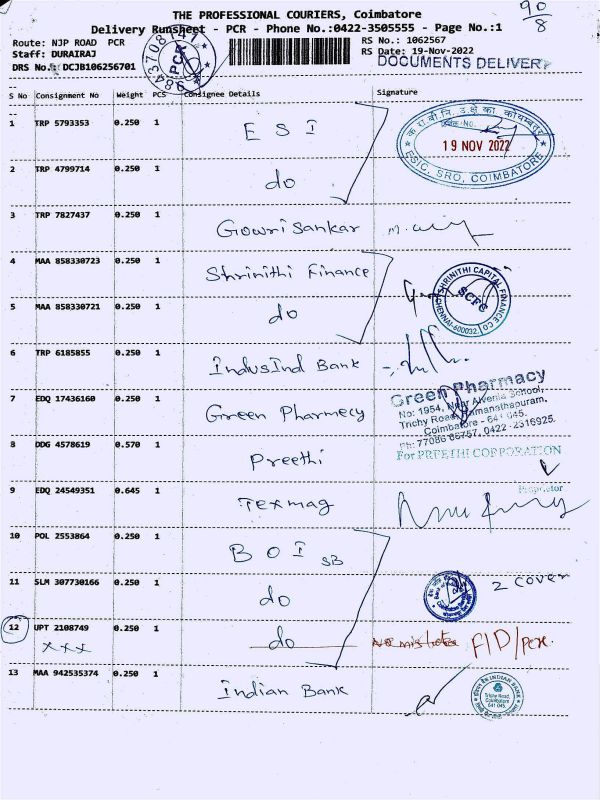 THE PROFESSIONAL COURIERS, Coimbatore
90/8
Delivery Runsheet - PCR - Phone No.:0422-3505555 - Page No.:1
Route: NJP ROAD PCR
RS No.: 1062567
Staff: DURAIRAJ
RS Date: 19-Nov-2022
DRS No.: DCJB106256701
DOCUMENTS DELIVERY
PCR
S No Consignment No Weight PCS Consignee Details Signature
1 TRP 5793353 0.250 1 ESI
19 NOV 2022
ESIC, SRO, COIMBATORE
2 TRP 4799714 0.250 1 do
3 TRP 7827437 0.250 1 Gowri Sankar
4 MAA 858330723 0.250 1 Shrinithi Finance
SHRINITHI CAPITAL FINANCE CO
SCFC
CHENNAI-600032
5 MAA 858330721 0.250 1 do
6 TRP 6185855 0.250 1 IndusInd Bank
7 EDQ 17436160 0.250 1 Green Pharmecy
Green Pharmacy
No: 1954, Near Alvernia School,
Trichy Road, Ramanathapuram,
Coimbatore - 641 045.
Ph: 77086 66757, 0422-2316925.
8 DDG 4578619 0.570 1 Preethi
For PREETHI CORPORATION
Proprietor
9 EDQ 24549351 0.645 1 Texmag
10 POL 2553864 0.250 1 BOI SB
11 SLM 307730166 0.250 1 do
2 cover
12 UPT 2108749 0.250 1 do
xxx
F/D/PCR
13 MAA 942535374 0.250 1 Indian Bank
INDIAN BANK
Trichy Road,
Coimbatore
641 045.